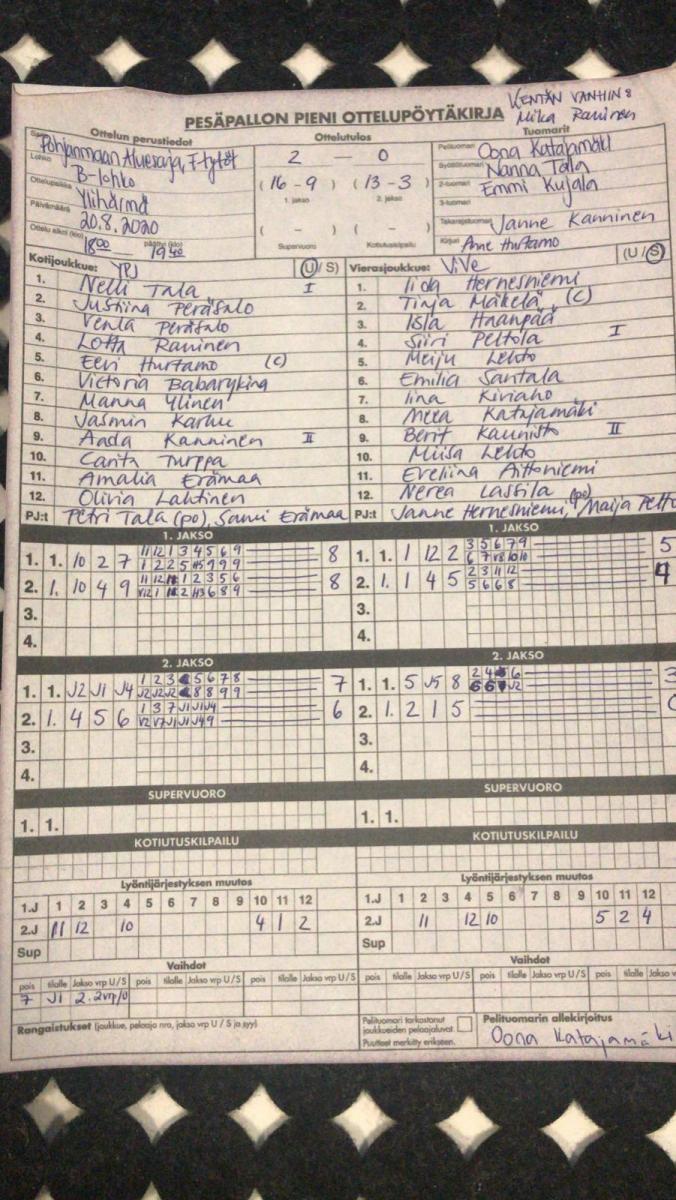 KENTÄN VANHIN:
Mika Raninen
PESÄPALLON PIENI OTTELUPÖYTÄKIRJA
Ottelun perustiedot
Ottelutulos
Tuomarit
Pohjanmaan Aluesarja, F-tytöt
Lohko
B-lohko
Ottelupaikka
Ylihärmä
Päivämäärä
20.8.2020
Ottelu alkoi (klo) 18:00 päättyi (klo) 19:40
2 – 0
(16 - 9) (13 - 3)
1. jakso 2. jakso
( - ) ( - )
Supervuoro Kotiutuskilpailu
Pelituomari Oona Katajamäki
Syöttötuomari Nanna Tala
2-tuomari Emmi Kujala
3-tuomari
Takarajatuomari Janne Kanninen
Kirjuri Anne Hurtamo
Kotijoukkue: YPJ (U/S)
1. Nelli Tala I
2. Justiina Peräsalo
3. Venla Peräsalo
4. Lotta Raninen
5. Eevi Hurtamo (C)
6. Victoria Babarykina
7. Manna Ylinen
8. Jasmin Karhu
9. Aada Kanninen II
10. Carita Turppa
11. Amalia Erämaa
12. Olivia Lahtinen
PJ:t Petri Tala (po), Sami Erämaa
Vierasjoukkue: ViVe (U/S)
1. Iida Hernesniemi
2. Tinja Mäkelä (C)
3. Isla Haanpää
4. Siiri Peltola I
5. Meiju Lehto
6. Emilia Santala
7. Iina Kiviaho
8. Meea Katajamäki
9. Berit Kaunisto II
10. Miisa Lehto
11. Eveliina Aittoniemi
12. Nerea Lassila
PJ:t Janne Hernesniemi, (po) Maija Pelto
1. JAKSO
1. 1. 10 2 7 11 12 1 3 4 5 6 9 8
2. 1. 10 4 9 8
3.
4.
1. JAKSO
1. 1. 1 12 2 3 5 6 7 9 5
2. 1. 1 4 5 2 3 11 12 4
5 6 6 8
3.
4.
2. JAKSO
1. 1. J2 J1 J4 7
2. 1. 4 5 6 1 3 7 J1 J1 J4 6
3.
4.
2. JAKSO
1. 1. 5 J5 8 3
2. 1. 2 1 5
3.
4.
SUPERVUORO
1. 1.
SUPERVUORO
1. 1.
KOTIUTUSKILPAILU
KOTIUTUSKILPAILU
Lyöntijärjestyksen muutos
1.J 1 2 3 4 5 6 7 8 9 10 11 12
2.J 11 12 10 4 1 2
Sup
Lyöntijärjestyksen muutos
1.J 1 2 3 4 5 6 7 8 9 10 11 12
2.J 11 12 10 5 2 4
Sup
Vaihdot
pois tilalle Jakso vrp U/S pois tilalle Jakso vrp U/S pois tilalle Jakso vrp U/S
7 J1 2.2vrp/U
Vaihdot
pois tilalle Jakso vrp U/S pois tilalle Jakso vrp U/S pois tilalle Jakso v
Rangaistukset (joukkue, pelaaja nro, jakso vrp U / S ja syy)
Pelituomari tarkastanut
joukkueiden pelaajaluvat.
Puutteet merkitty erikseen.
Pelituomarin allekirjoitus
Oona Katajamäki